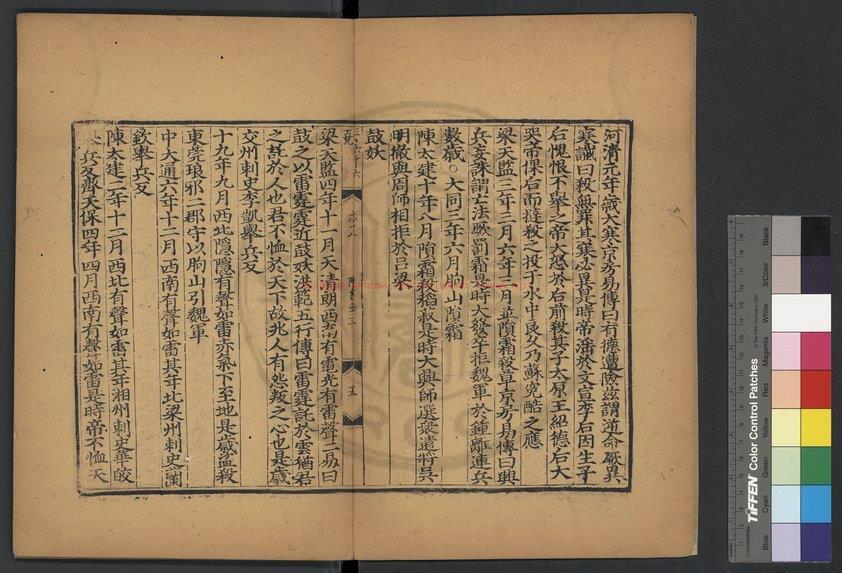 河清元年歲大寒京房易傳曰有德遭險茲謂逆命厥異
寒讖曰殺無罪其寒必異是時帝淫於文宣李后因生子
后愧恨不舉之帝大怒於后前殺其子太原王紹德后大
哭帝倮后而撻殺之投于水中良久乃蘇冤酷之應
梁天監三年三月六年三月並隕霜殺草京房易傳曰興
兵妄誅謂亡法厥罰霜是時大發卒拒魏軍於鍾離連兵
數歲○大同三年六月朐山隕霜
陳太建十年八月隕霜殺稻菽是時大興師選衆遣將吳
明徹與周師相拒於呂梁
鼓妖
梁天監四年十一月天清朗西南有電光有雷聲二易曰
鼓之以雷霆霆近鼓妖洪範五行傳曰雷霆託於雲猶君
之託於人也君不恤於天下故兆人有怨叛之心也是歲
交州刺史李凱舉兵反
十九年九月西北隱隱有聲如雷赤氣下至地是歲盜殺
東莞琅邪二郡守以朐山引魏軍
中大通六年十二月西南有聲如雷其年北梁州刺史蘭
欽舉兵反
陳太建二年十二月西北有聲如雷其年湘州刺史華皎
兵反齊天保四年四月西南有聲如雷是時帝不恤天